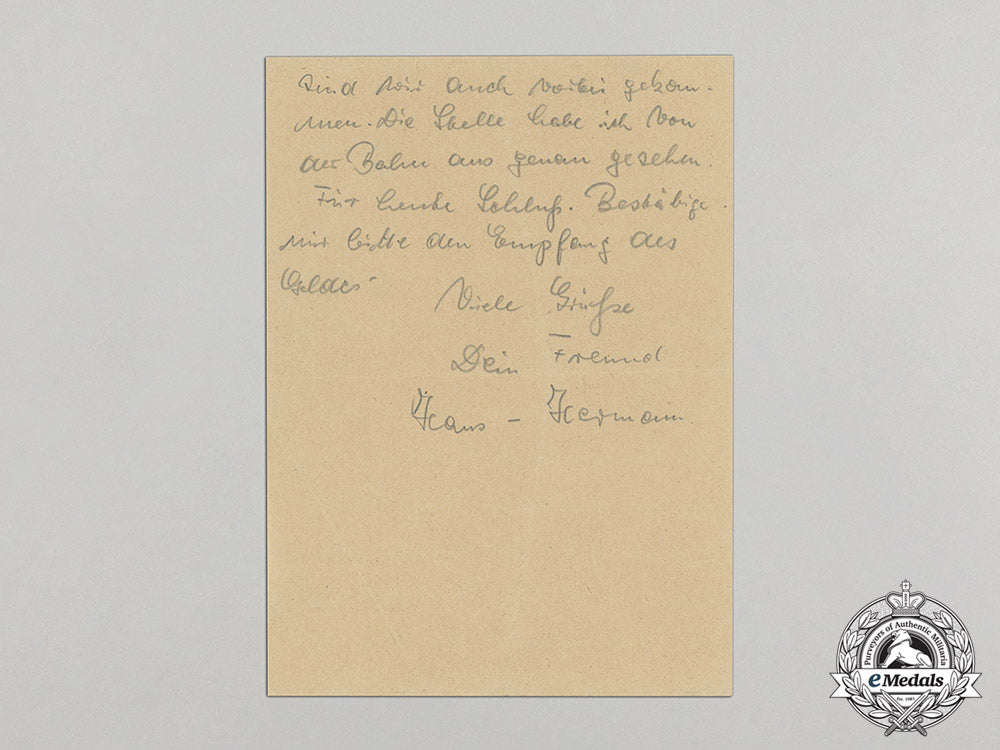 sind wir auch vorbei gekom-
men. Die Stelle habe ich von
der Bahn aus genau gesehen.
Für heute Schluß. Bestätige
mir bitte den Empfang des
Geldes
Viele Grüße
Dein Freund
Hans - Hermann
Purveyors of Authentic Militaria
eMedals
Est. 1985